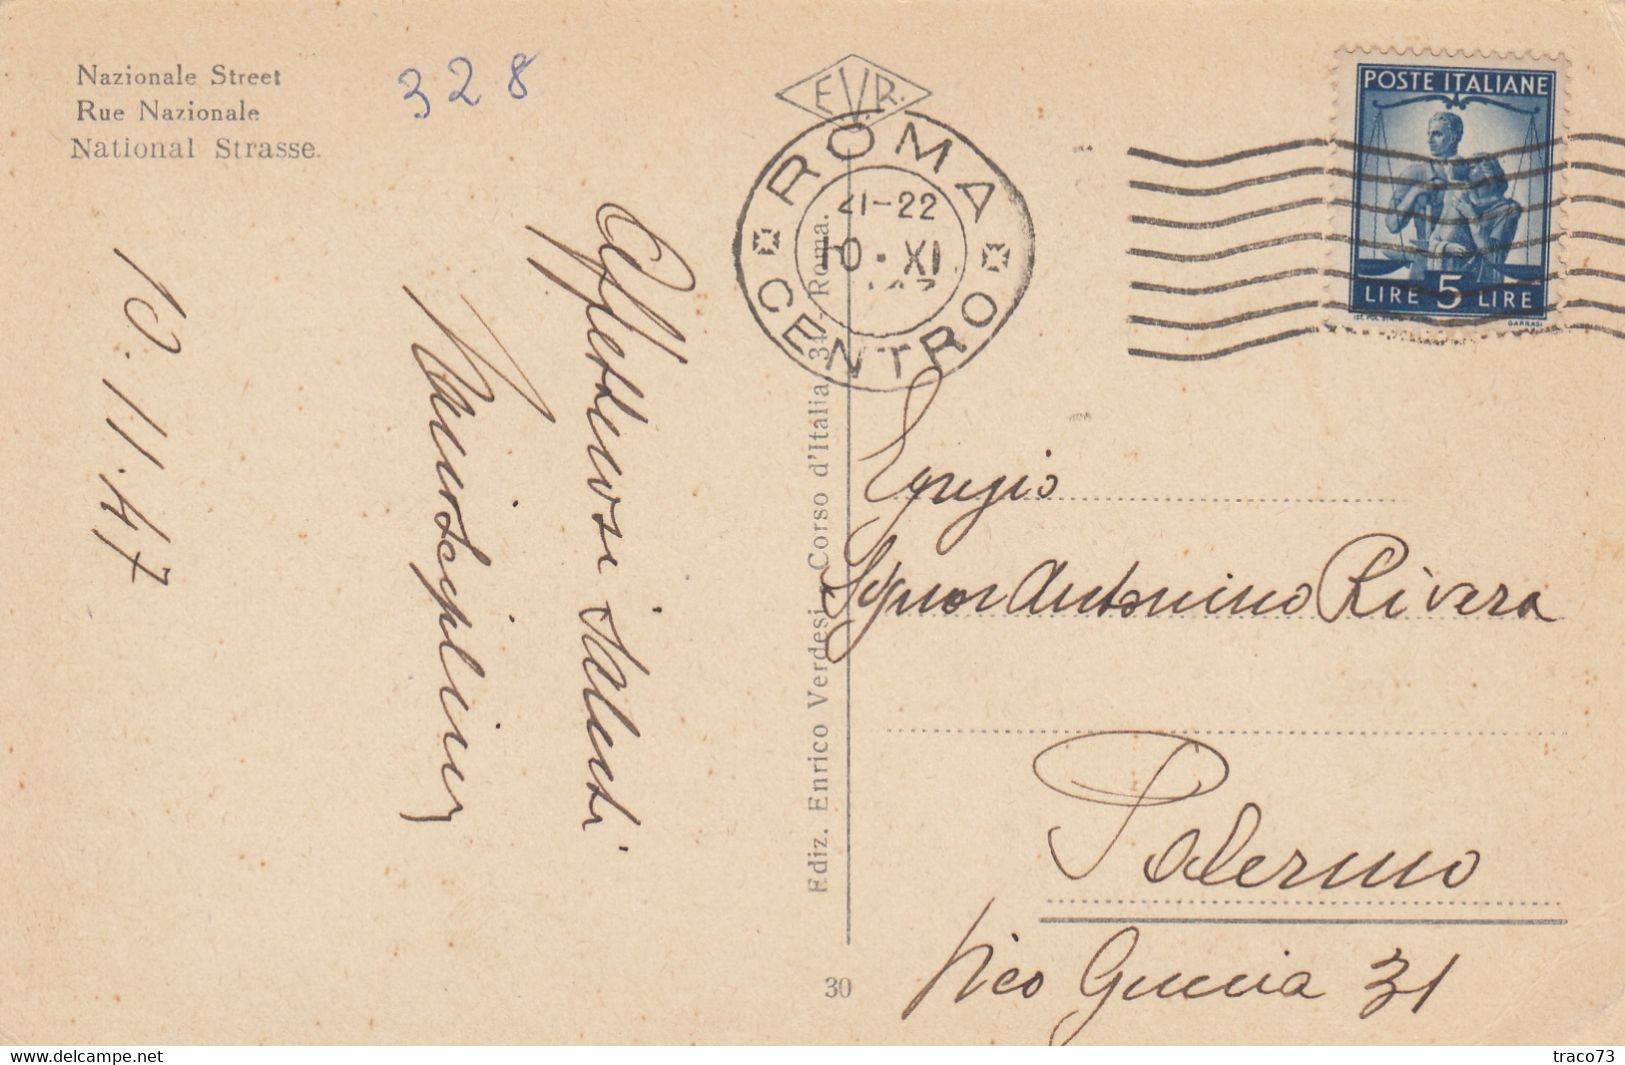 Nazionale Street
Rue Nazionale
National Strasse.
328
E.V.R.
ROMA
21-22
10·XI
CENTRO
POSTE ITALIANE
LIRE 5 LIRE
GARRASI
Affettuosi saluti
10.11.47
Ediz. Enrico Verdesi - Corso d'Italia 34 - Roma.
30
Egregio
Signor Antonino Rivera
Palermo
Vico Guccia 31
www.delcampe.net
traco73